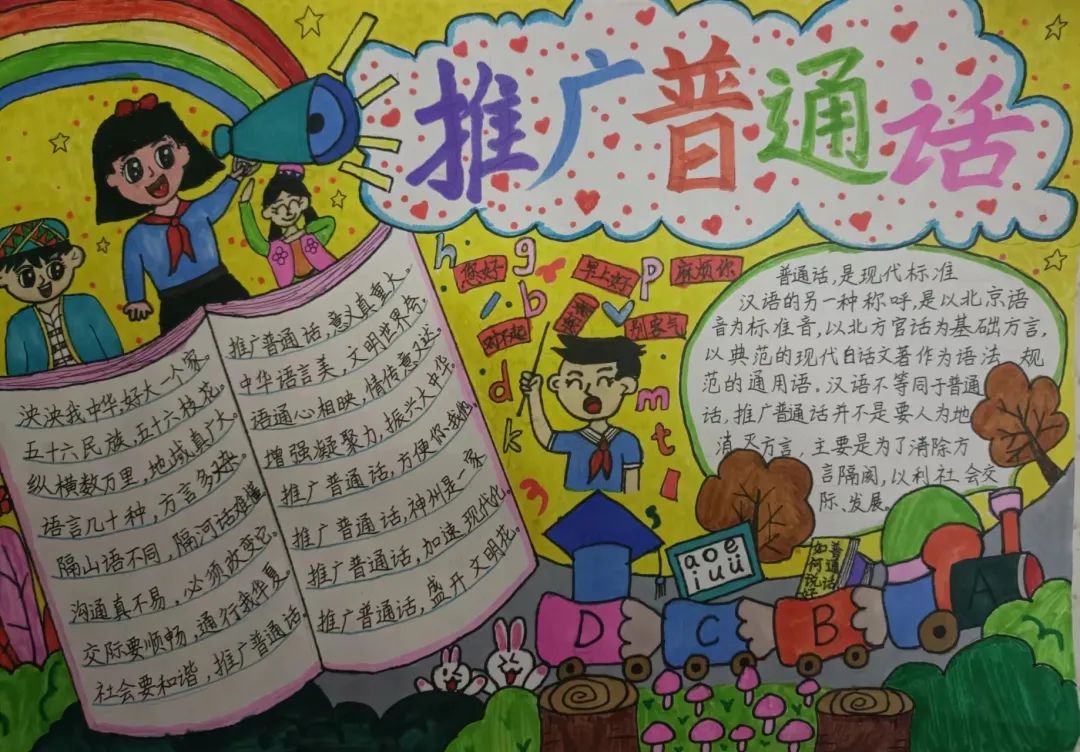 推广普通话
h
g
p
b
d
k
m
t
l
s
您好
早上好
麻烦你
对不起
谢谢
别客气
泱泱我中华,好大一个家。
五十六民族,五十六枝花。
纵横数万里,地域真广大。
语言几十种,方言多如麻。
隔山语不同,隔河话难懂
沟通真不易,必须改变它。
交际要顺畅,通行我华夏。
社会要和谐,推广普通话
推广普通话,意义真重大。
中华语言美,文明世界夸。
语通心相映,情传意又达。
增强凝聚力,振兴大中华。
推广普通话,方便你我他。
推广普通话,神州是一家
推广普通话,加速现代化。
推广普通话,盛开文明花。
普通话,是现代标准
汉语的另一种称呼,是以北京语
音为标准音,以北方官话为基础方言,
以典范的现代白话文著作为语法 规
范的通用语,汉语不等同于普通
话,推广普通话并不是要人为地
消灭方言,主要是为了消除方
言隔阂,以利社会交
际、发展。
aoe
iuü
普通话
如何说好
D
C
B
A